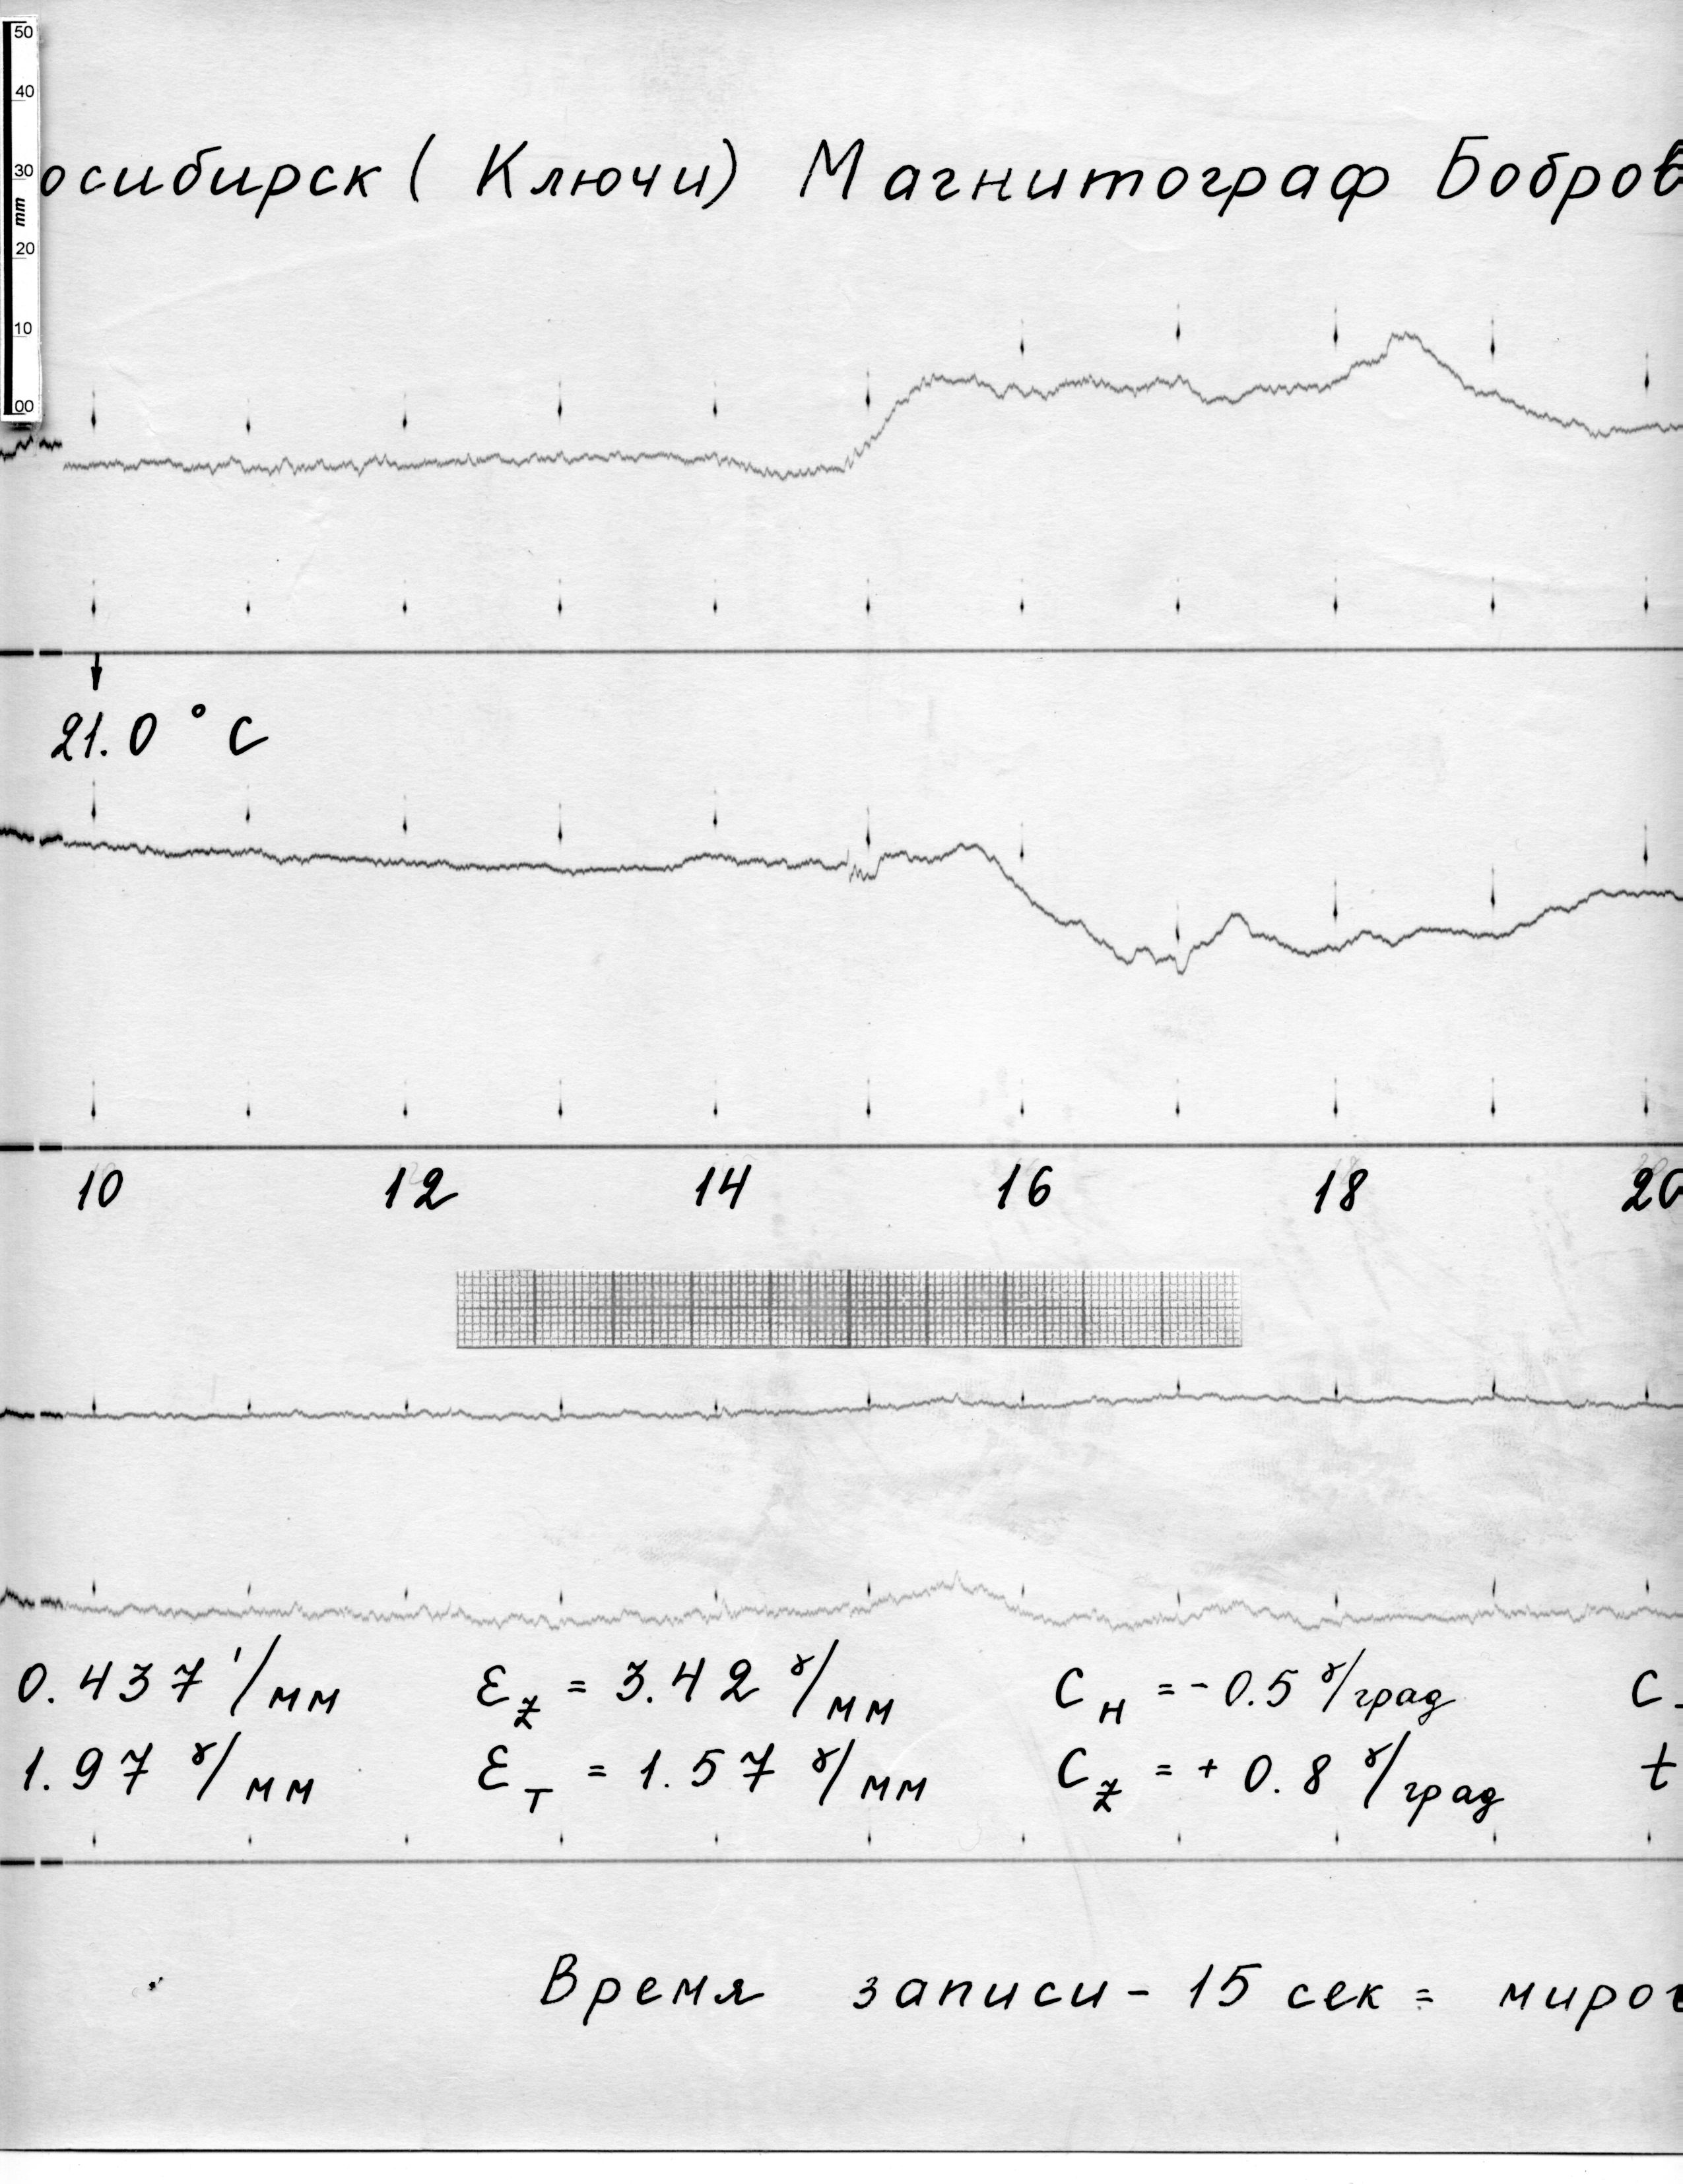 50
40
30
mm
20
10
00
осибирск ( Ключи) Магнитограф Бобров
21.0 ° C
10 12 14 16 18 20
0.437 '/мм εz = 3.42 γ/мм CH = - 0.5 γ/град C
1.97 γ/мм εT = 1.57 γ/мм Cz = + 0.8 γ/град t
Время записи - 15 сек = миро